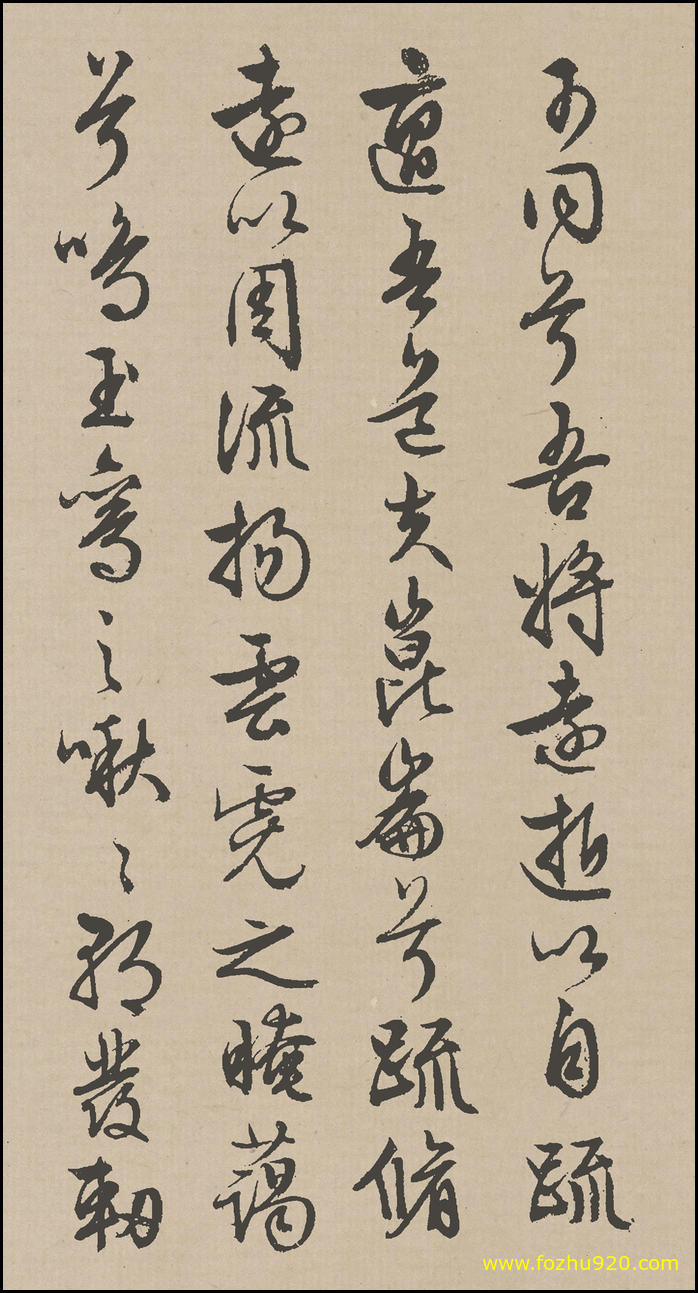 可同兮吾将遠逝以自疏
邅吾道夫崑崙兮疏脩
遠以周流扬雲霓之晻藹
兮鳴玉鸞之啾々朝發軔
www.fozhu920.com